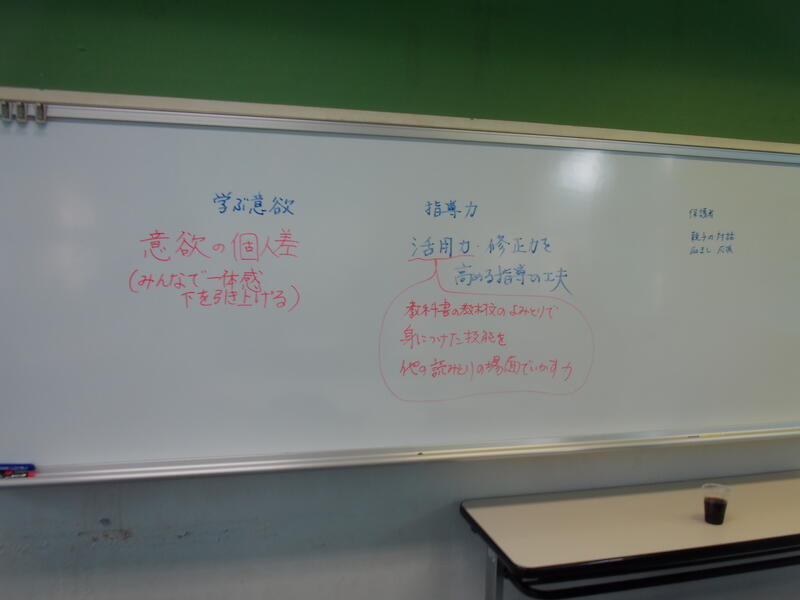 学ぶ意欲
意欲の個人差
(みんなで一体感
下を引き上げる)
指導力
活用力・修正力を
高める指導の工夫
教科書の教材文のよみとりで
身につけた技能を
他の読みとりの場面でいかす力
保護者
親子の対話
励まし 応援